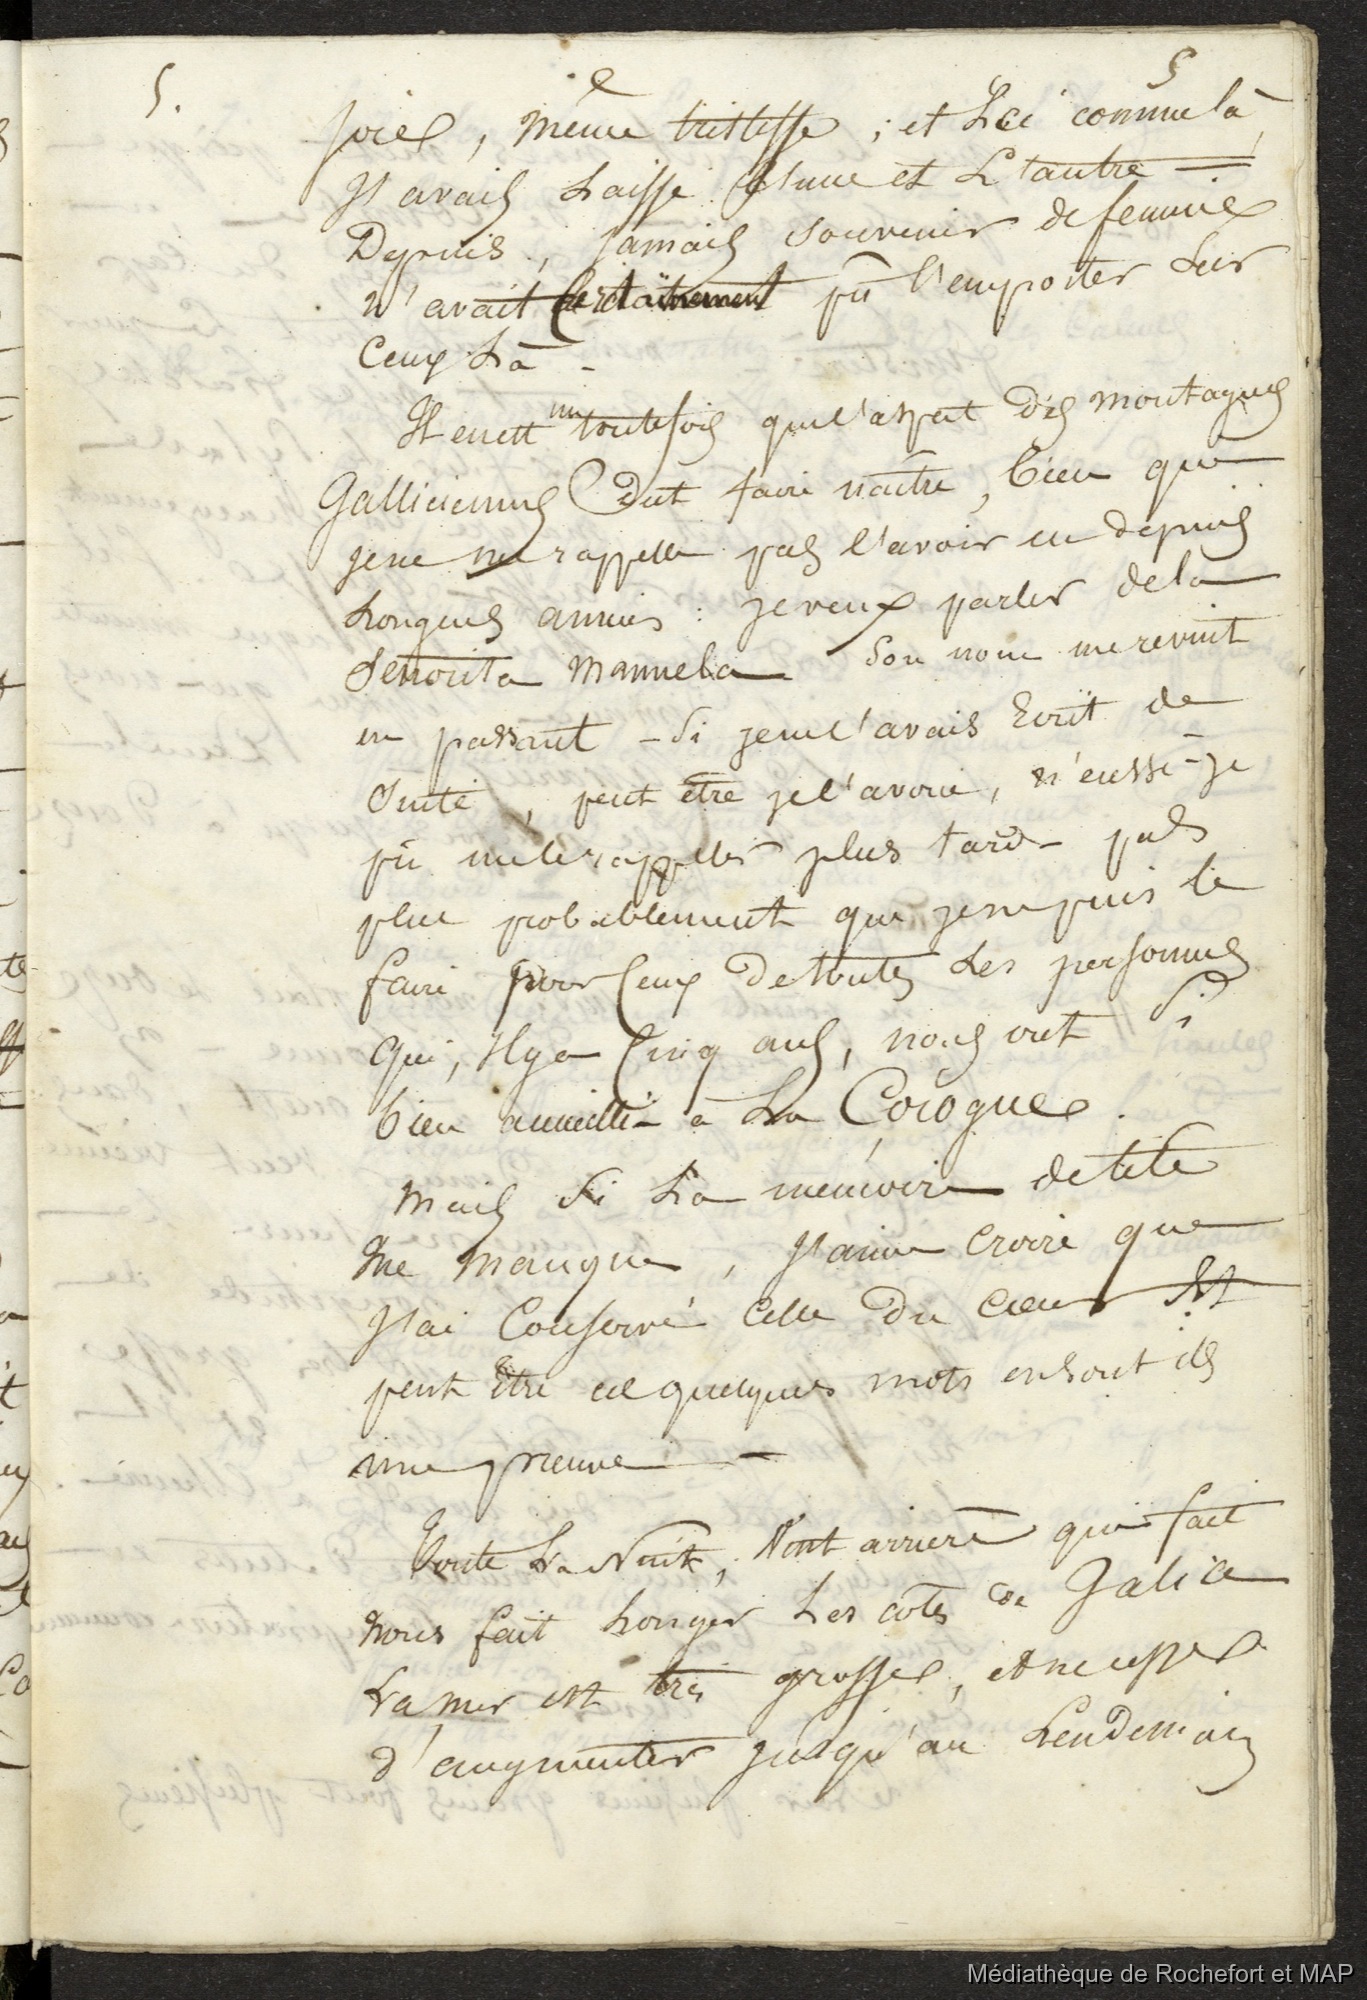 5.
5
joies, même tristesse ; et Ici comme là
J'avais Laissé L'une et L'autre —
Depuis, jamais souvenir de femmes
n'avait Certainement pû l'emporter sur
Ceux Là —
Il en est un toutefois que l'aspect des montagnes
Galliciennes Dut faire naître, bien que
je ne me rappelle pas l'avoir eu depuis
Longues années : je veux parler de la
Senorita Manuela Son nom me revint
en passant — Si je ne l'avais Ecrit de
Suite, peut être je l'avoue, n'eussé-je
pû me le rappeller plus tard — pas
plus probablement que je ne puis le
faire pour Ceux de toutes Les personnes
qui, Il y a Cinq ans, nous ont Si
bien accueilli à La Corogne.
Mais Si La mémoire de tête
me manque, J'aime croire que
J'ai Conservé Celle du cœur Et
peut Etre ces quelques mots en Sont ils
une preuve —
Toute La Nuit, Vent arrière qui fait
nous fait Longer Les côtes de Galice
La mer est très grosse, et ne cesse
d'augmenter jusqu'au Lendemain
Médiathèque de Rochefort et MAP